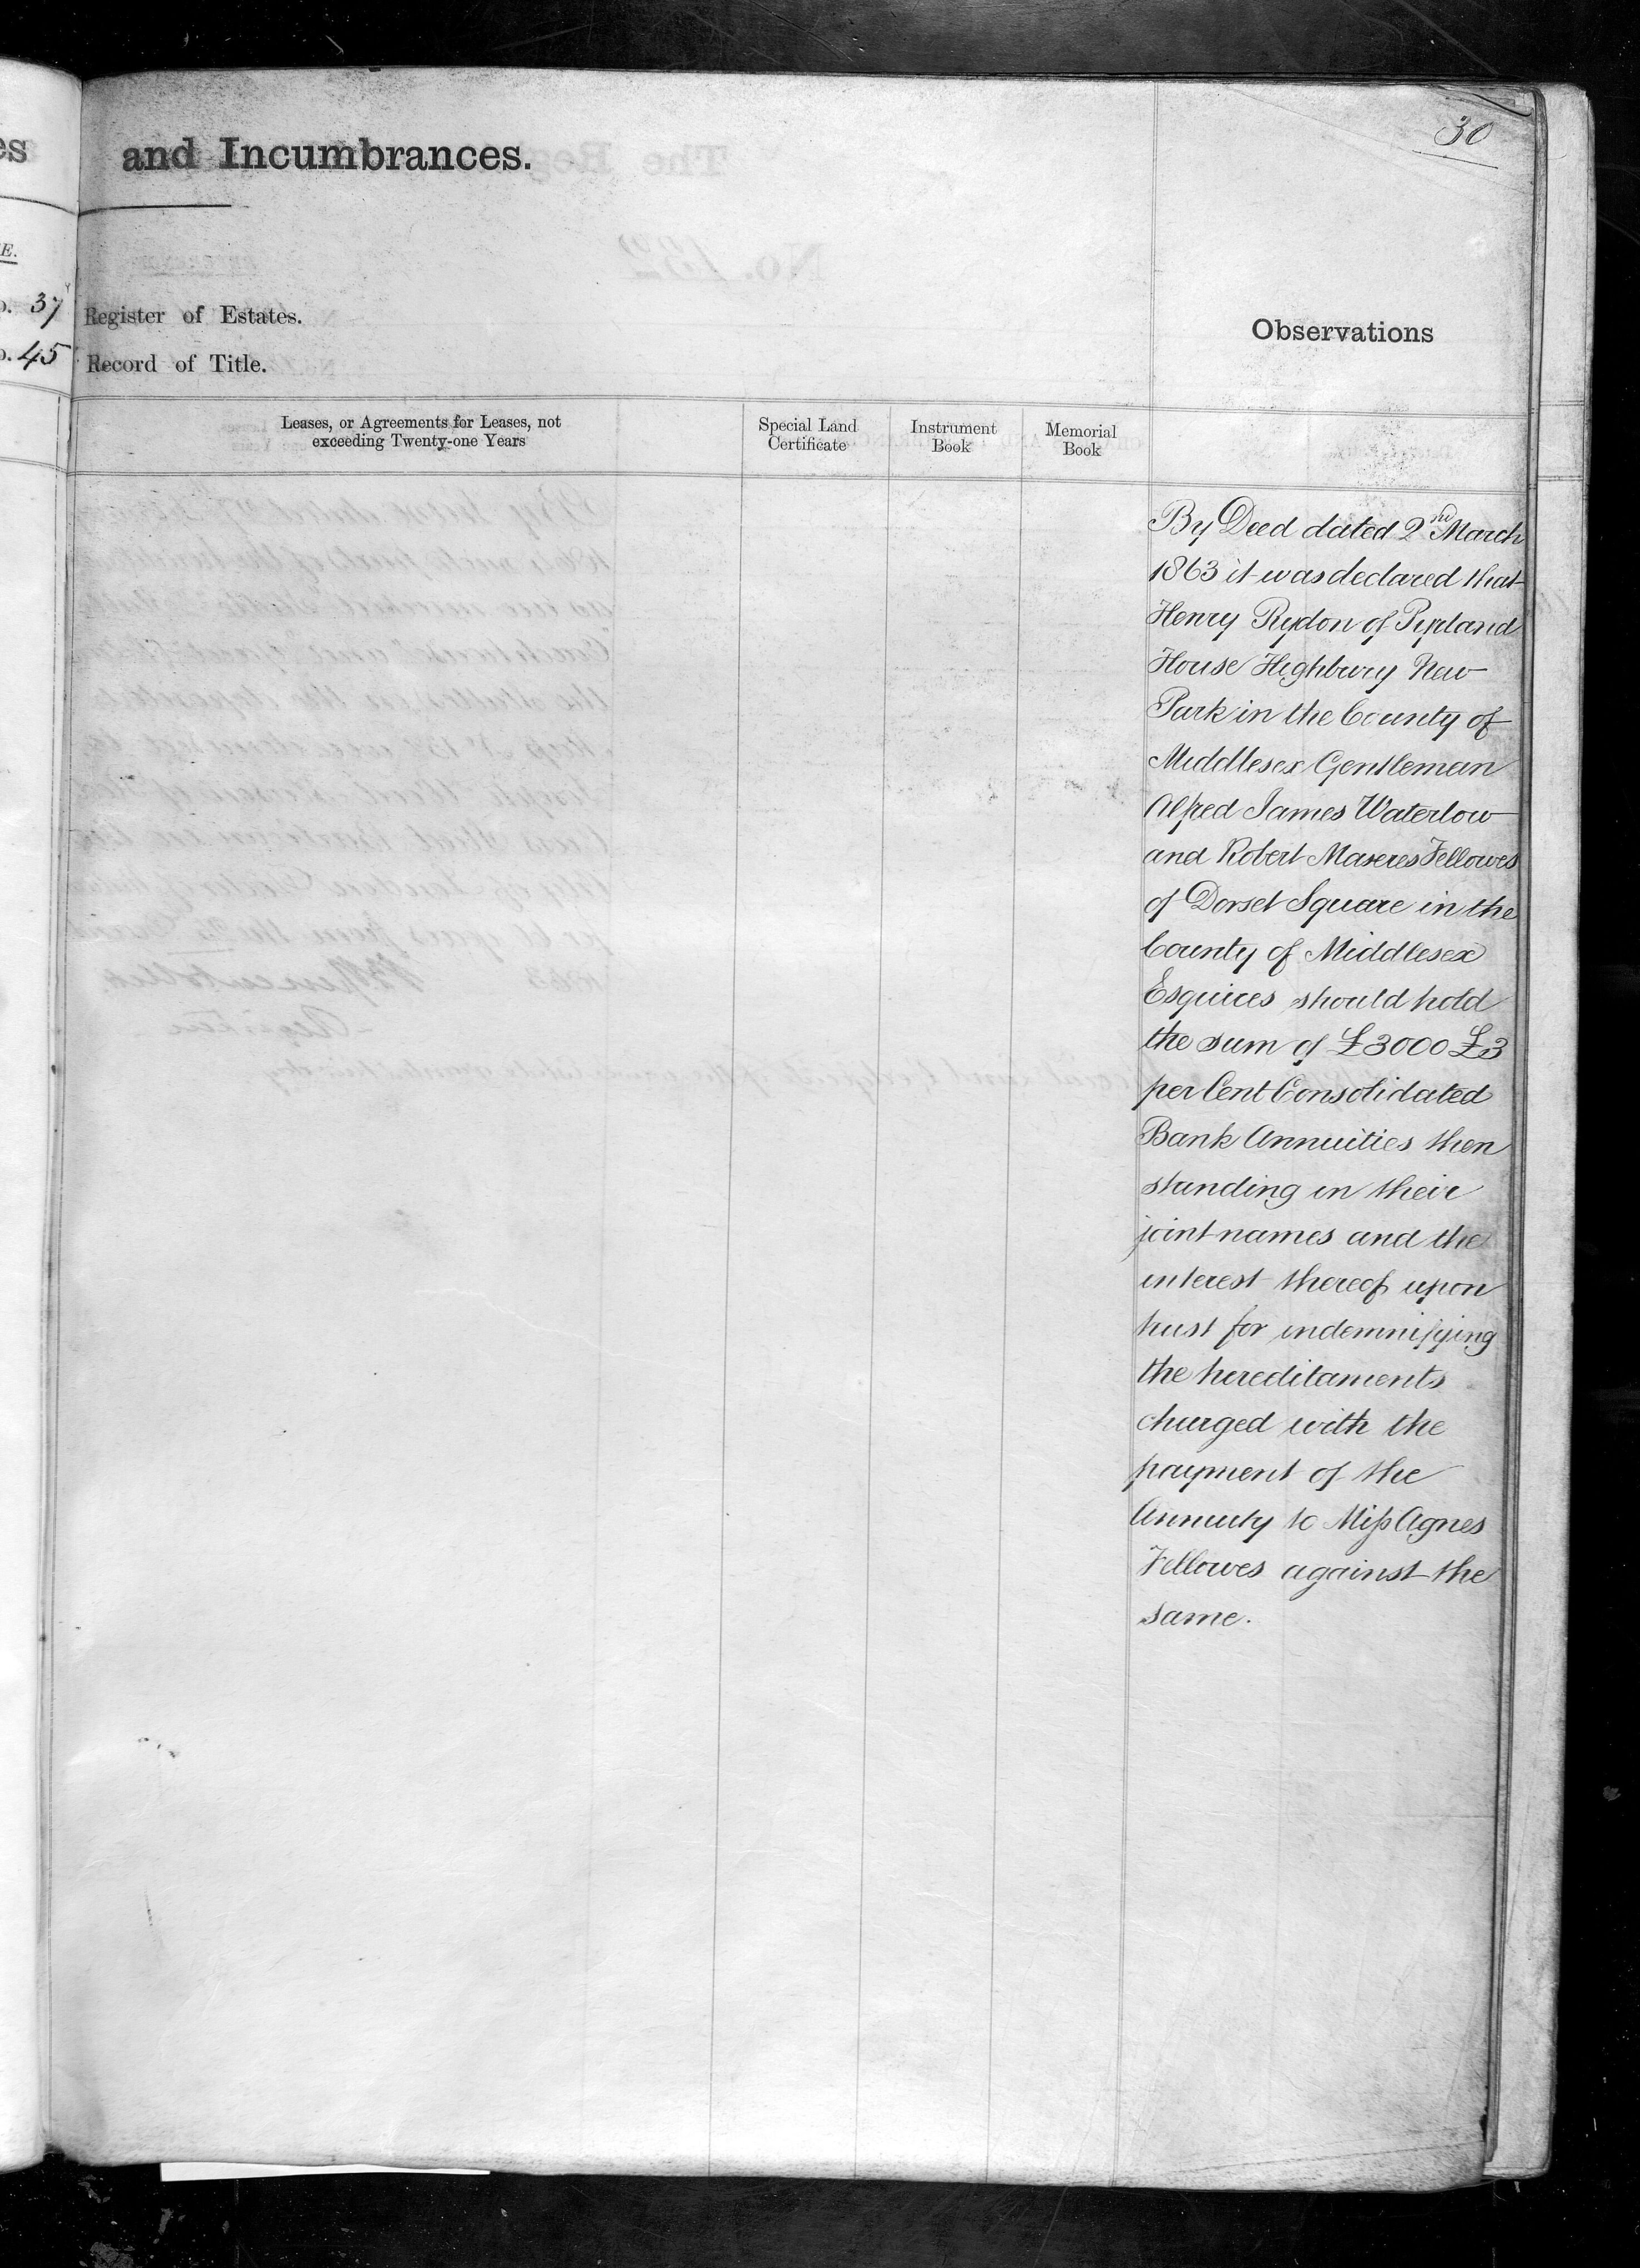 30
es
and Incumbrances.
E.
o. 37 Register of Estates.
o. 45 Record of Title.
Observations
Leases, or Agreements for Leases, not
exceeding Twenty-one Years
Special Land
Certificate
Instrument
Book
Memorial
Book
By Deed dated 2nd March
1863 it was declared that
Henry Rydon of Pyrland
House Highbury New
Park in the County of
Middlesex Gentleman
Alfred James Waterlow
and Robert Maseres Fellowes
of Dorset Square in the
County of Middlesex
Esquires should hold
the sum of £3000 £3
per Cent Consolidated
Bank Annuities then
standing in their
joint names and the
interest thereof upon
trust for indemnifying
the hereditaments
charged with the
payment of the
Annuity to Miss Agnes
Fellowes against the
same.